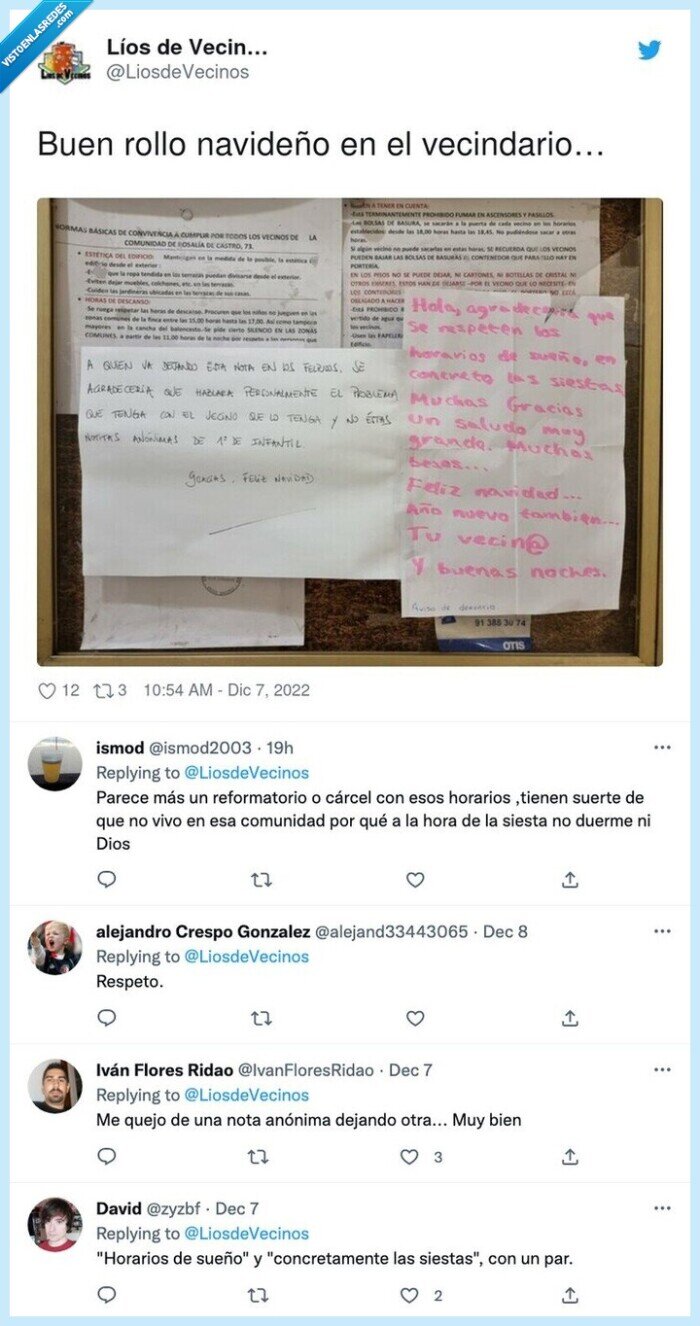 VISTOENLASREDES
.com
Líos de Vecin...
@LiosdeVecinos
Buen rollo navideño en el vecindario...
NORMAS BÁSICAS DE CONVIVENCIA A CUMPLIR POR TODOS LOS VECINOS DE LA
COMUNIDAD DE ROSALÍA DE CASTRO, 73.
ESTÉTICA DEL EDIFICIO: Mantengan en la medida de lo posible, la estética
edificio desde el exterior:
que la ropa tendida en las terrazas puedan divisarse desde el exterior.
-Eviten dejar muebles, colchones, etc. en las terrazas.
-Cuiden las jardineras ubicadas en las terrazas de sus casas.
HORAS DE DESCANSO:
Se ruega respetar las horas de descanso. Procuren que los niños no jueguen en las
zonas comunes de la finca entre las 15,00 horas hasta las 17,00. Así como tampoco
mayores en la cancha del baloncesto. Se pide cierto SILENCIO EN LAS ZONAS
COMUNES, a partir de las 11,00 horas de la noche por respeto a las personas que
A TENER EN CUENTA:
-Está TERMINANTEMENTE PROHIBIDO FUMAR EN ASCENSORES Y PASILLOS.
-Las BOLSAS DE BASURA, se sacarán a la puerta de cada vecino en los horarios
establecidos: desde las 18,00 horas hasta las 18,45. No pudiéndose sacar a otras
horas.
Si algún vecino no puede sacarlas en estas horas, SE RECUERDA QUE LOS VECINOS
PUEDEN BAJAR LAS BOLSAS DE BASURAS AL CONTENEDOR QUE PARA ELLO HAY EN
PORTERÍA.
EN LOS PISOS NO SE PUEDE DEJAR, NI CARTONES, NI BOTELLAS DE CRISTAL NI
OTROS ENSERES. ESTOS HAN DE DEJARSE -POR EL VECINO QUE LO NECESITE- EN
LOS CONTENEDORES
OBLIGADO A HACER
-Está PROHIBIDO
vertido de agua
los vecinos.
-Usen las PAPELERAS
Edificio.
A QUIEN VA DEJANDO ESTA NOTA EN LOS FELPUDOS, SE
AGRADECERÍA QUE HABLARA PERSONALMENTE EL PROBLEMA
QUE TENGA CON EL VECINO QUE LO TENGA Y NO ESTAS
NOTITAS ANÓNIMAS DE 1º DE INFANTIL.
GRACIAS, FELIZ NAVIDAD
Hola, agradecería que
se respeten los
horarios de sueño, en
concreto las siestas
Muchas Gracias
un saludo muy
grande. Muchos
besos...
Feliz navidad...
Año nuevo también...
Tu vecin@
Y buenas noches.
Aviso de denuncia
91 388 30 74
OTIS
12 3 10:54 AM - Dic 7, 2022
ismod @ismod2003 · 19h
Replying to @LiosdeVecinos
Parece más un reformatorio o cárcel con esos horarios ,tienen suerte de
que no vivo en esa comunidad por qué a la hora de la siesta no duerme ni
Dios
alejandro Crespo Gonzalez @alejand33443065 · Dec 8
Replying to @LiosdeVecinos
Respeto.
Iván Flores Ridao @IvanFloresRidao · Dec 7
Replying to @LiosdeVecinos
Me quejo de una nota anónima dejando otra... Muy bien
3
David @zyzbf · Dec 7
Replying to @LiosdeVecinos
"Horarios de sueño" y "concretamente las siestas", con un par.
2